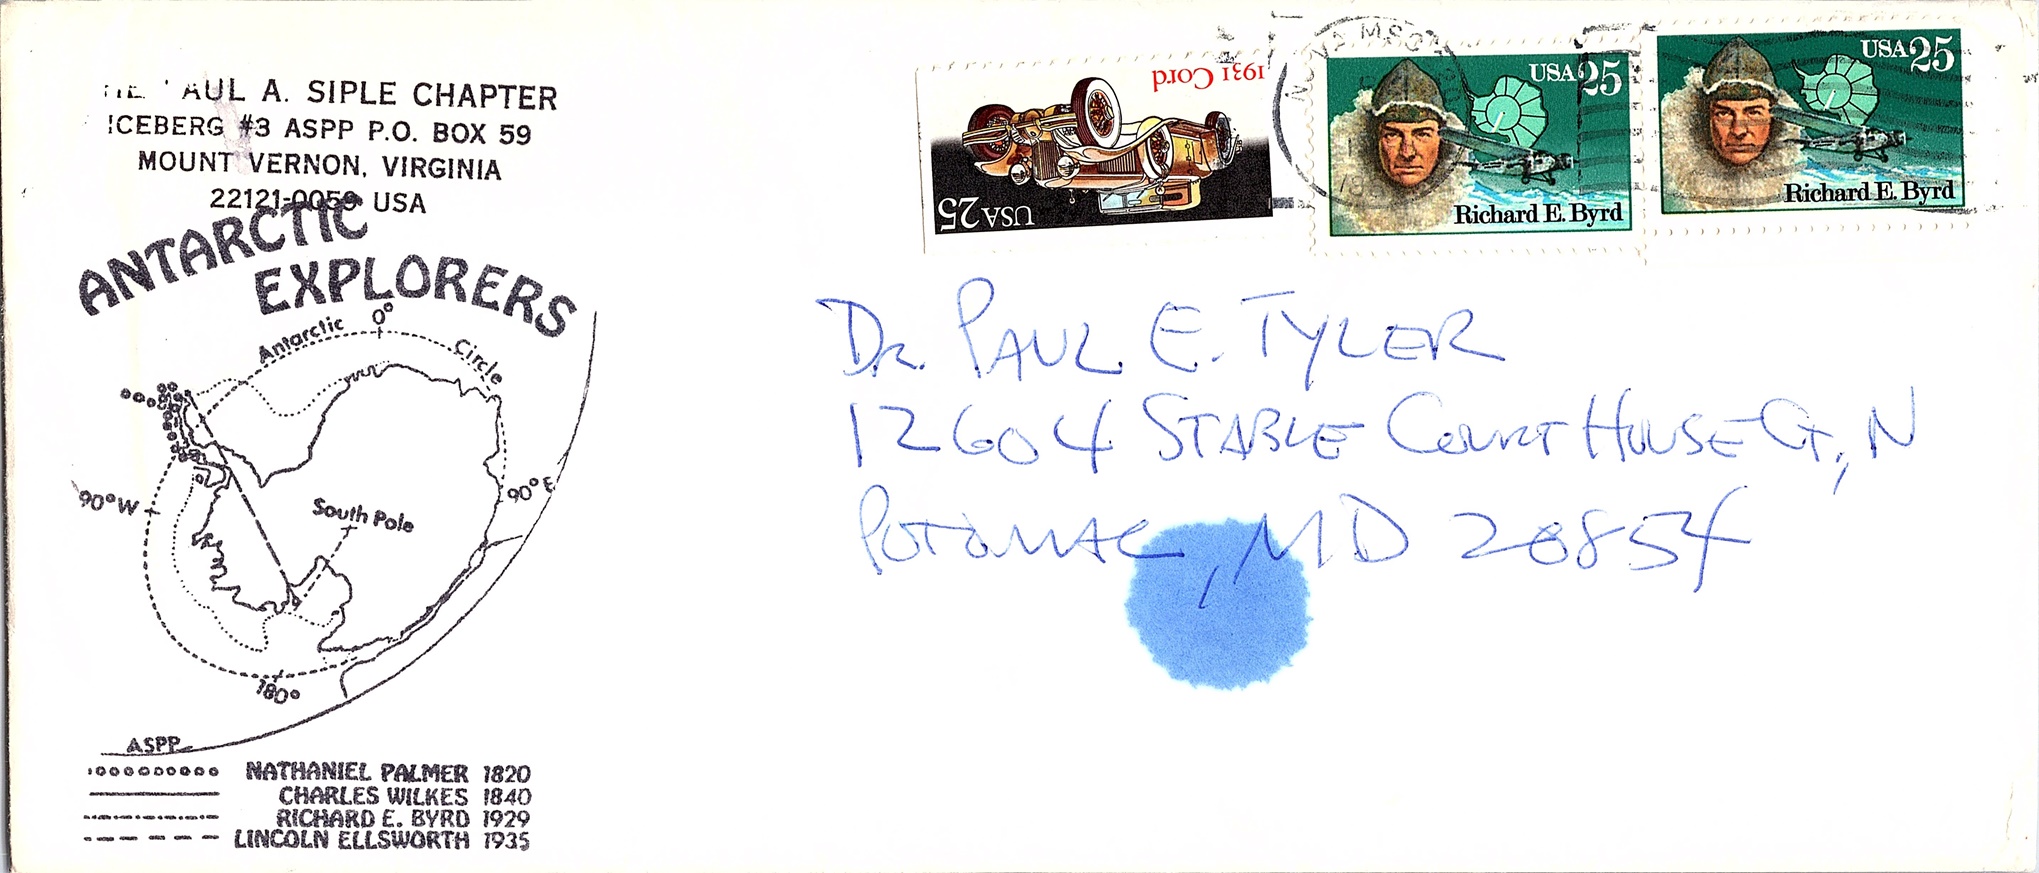 AUL A. SIPLE CHAPTER
ICEBERG #3 ASPP P.O. BOX 59
MOUNT VERNON, VIRGINIA
22121-0059 USA
ANTARCTIC
EXPLORERS
0°
Antarctic Circle
90°W
90° E
South Pole
180°
ASPP
NATHANIEL PALMER 1820
CHARLES WILKES 1840
RICHARD E. BYRD 1929
LINCOLN ELLSWORTH 1935
1931 Cord
USA 25
USA 25
Richard E. Byrd
USA 25
Richard E. Byrd
DR. PAUL E. TYLER
12604 STABLE COURT HOUSE CT, N
POTOMAC, MD 20854